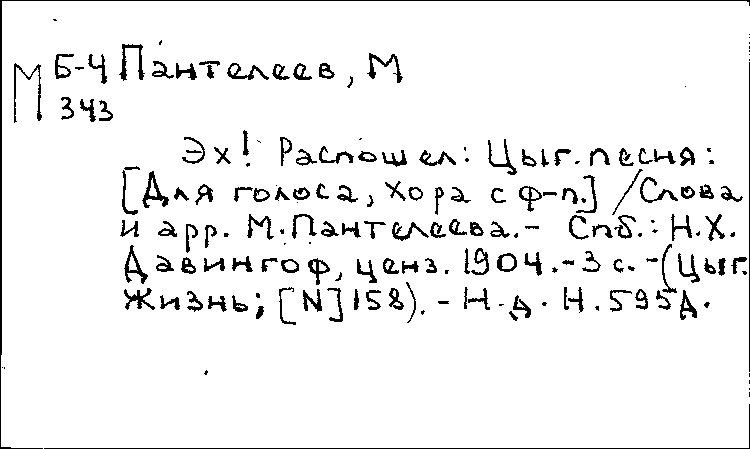 М Б-4 Пантелеев, М
343
Эх! Распошел: Цыг. песня:
[Для голоса, хора с ф-п.] / Слова
и арр. М. Пантелеева. - Спб.: Н.Х.
Давингоф, ценз. 1904. - 3 с. - (Цыг.
жизнь; [N] 158). - Н.д. Н.595Д.